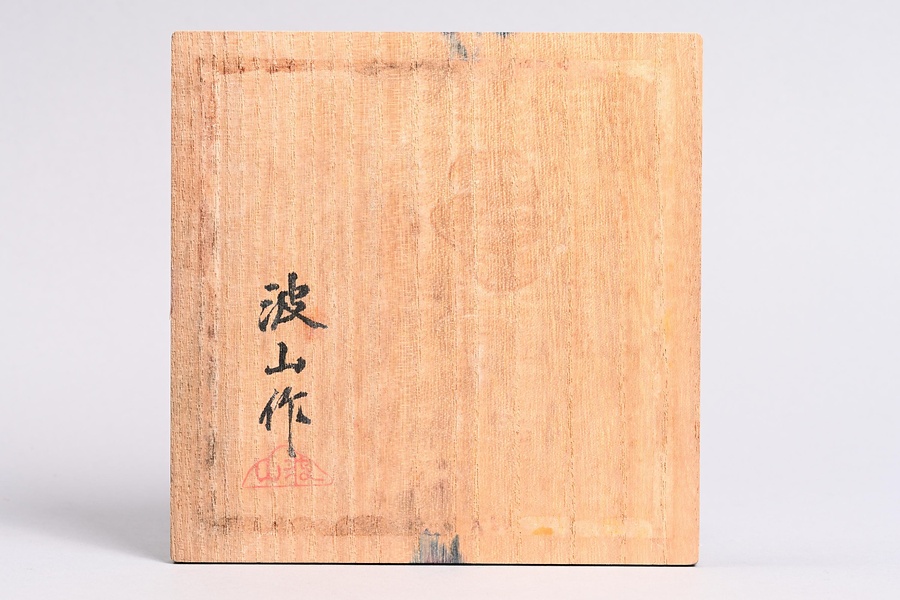 波山作
波山